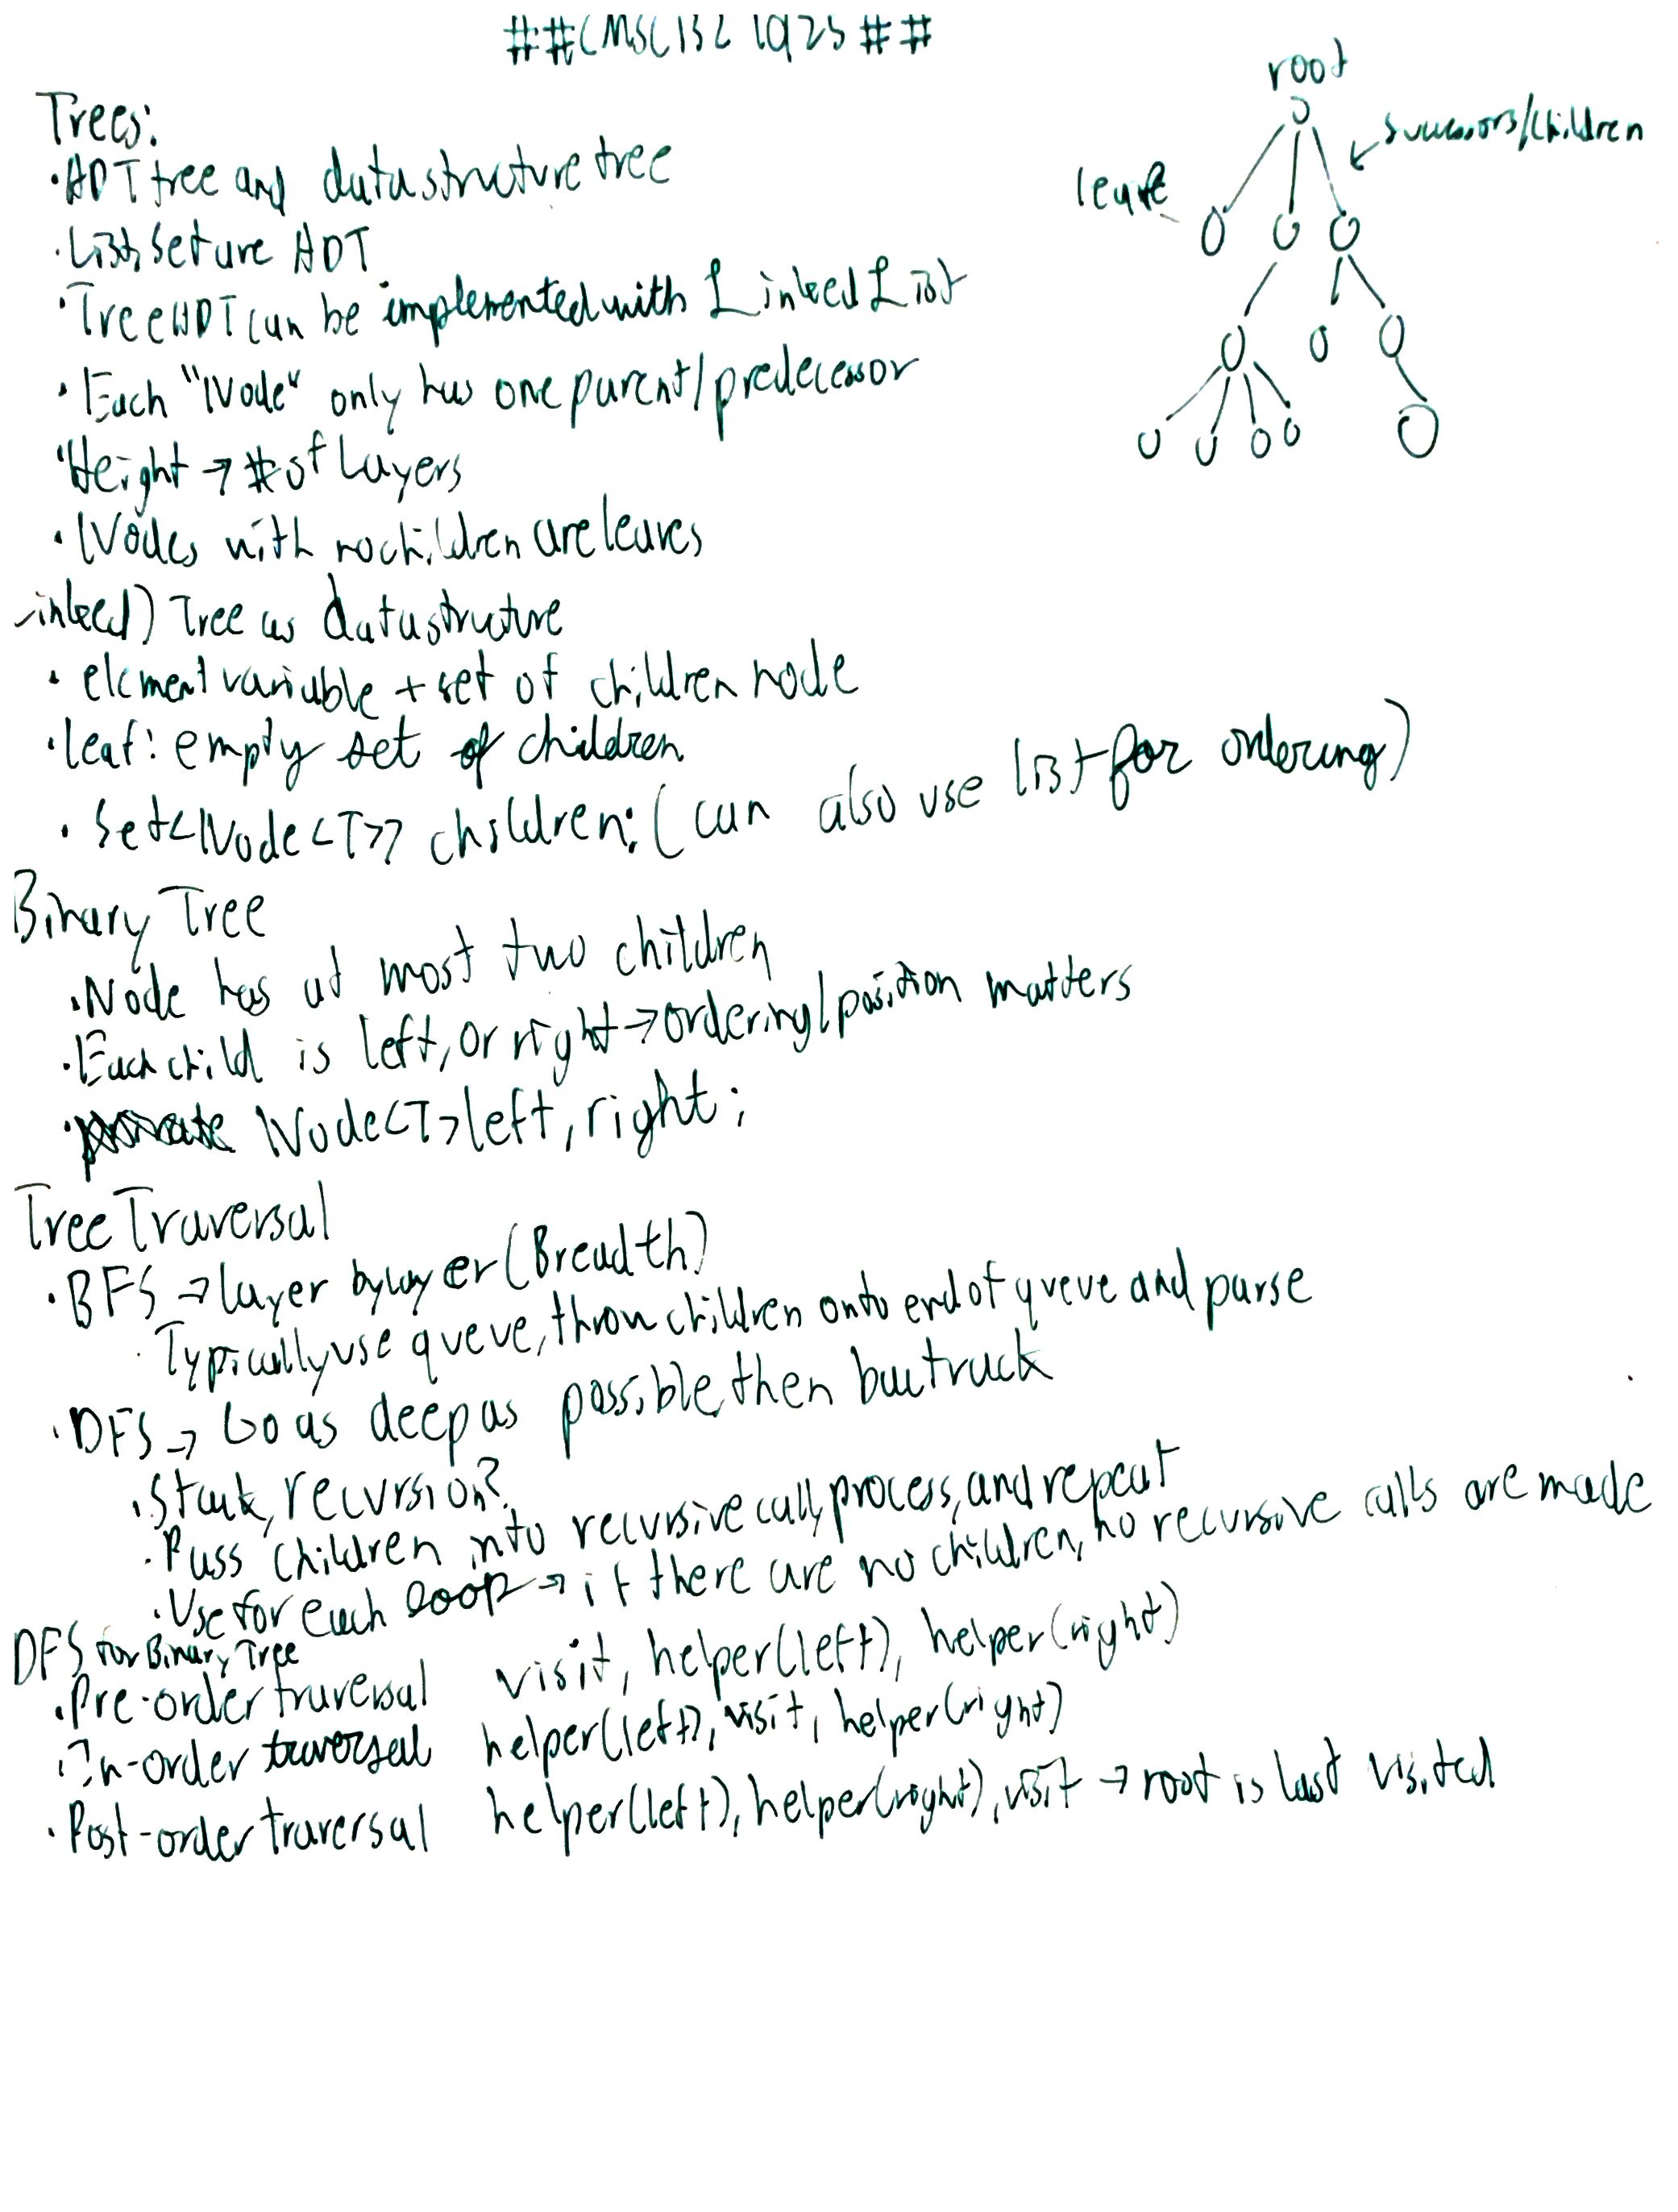 ##CMSC132 1925##
root
successors/children
leaf
Trees:
·ADT tree and datastructure tree
·List, Set are ADT
·Tree ADT can be implemented with Linked List
·Each "Node" only has one parent/predecessor
·Height → # of Layers
·Nodes with no children are leaves
inked) Tree as datastructure
·element variable + set of children node
·leaf: empty set of children
·Set<Node<T>> children; (can also use list for ordering)
Binary Tree
·Node has at most two children
·Each child is left, or right → ordering/position matters
·private Node<T> left, right;
Tree Traversal
·BFS → layer by layer (Breadth)
·Typically use queue, throw children onto end of queue and parse
·DFS → Go as deep as possible, then bactrack
·Stack, recursion?
·Pass children into recursive call, process, and repeat
·Use for each loop → if there are no children, no recursive calls are made
DFS for Binary Tree
·Pre-order traversal visit, helper(left), helper(right)
·In-order traversal helper(left), visit, helper(right)
·Post-order traversal helper(left), helper(right), visit → root is last visited